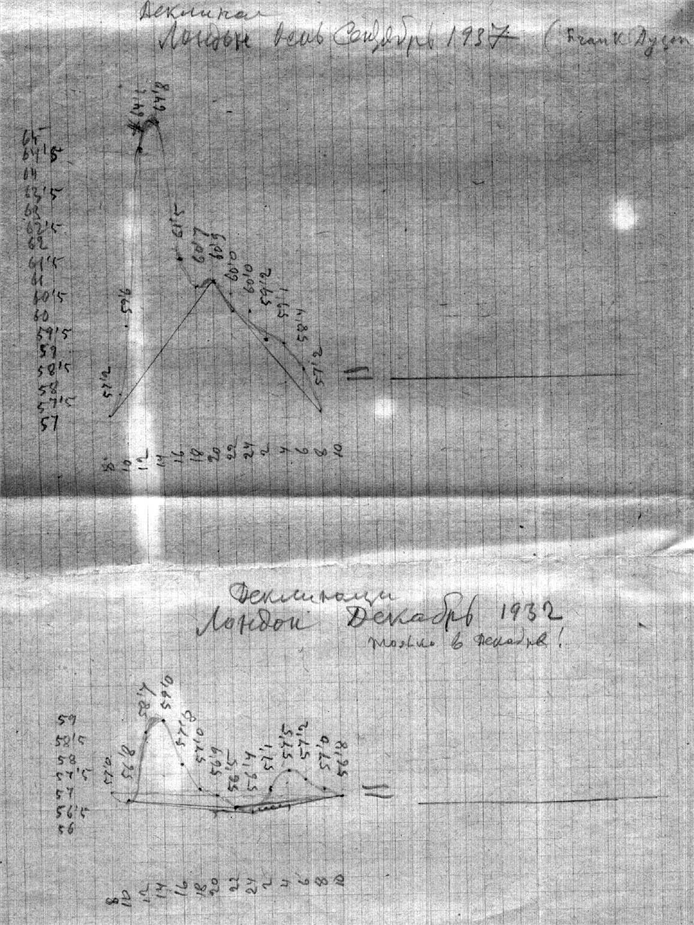 Деклинац
Лондон Сентябрь 1937 (Frank Dyson
64'1
64'8
65
64'5
64
63'5
63
62'5
62
61'5
61
60'5
60
59'5
59
58'5
58
57'5
57
57'2
59'6
61'5
60'7
60'9
60'0
60'0
59'2
59'1
58'4
57'2
=
8 10 12 14 16 18 20 22 24 2 4 6 8 10
Деклинаци
Лондон Декабрь 1932
только в декабре!
59
58'5
58
57'5
57
56'5
56
57'0
56'8
58'7
59'0
57'8
57'0
56'9
56'5
56'4
57'1
57'5
57'2
57'0
56'8
=
8 10 12 14 16 18 20 22 24 2 4 6 8 10